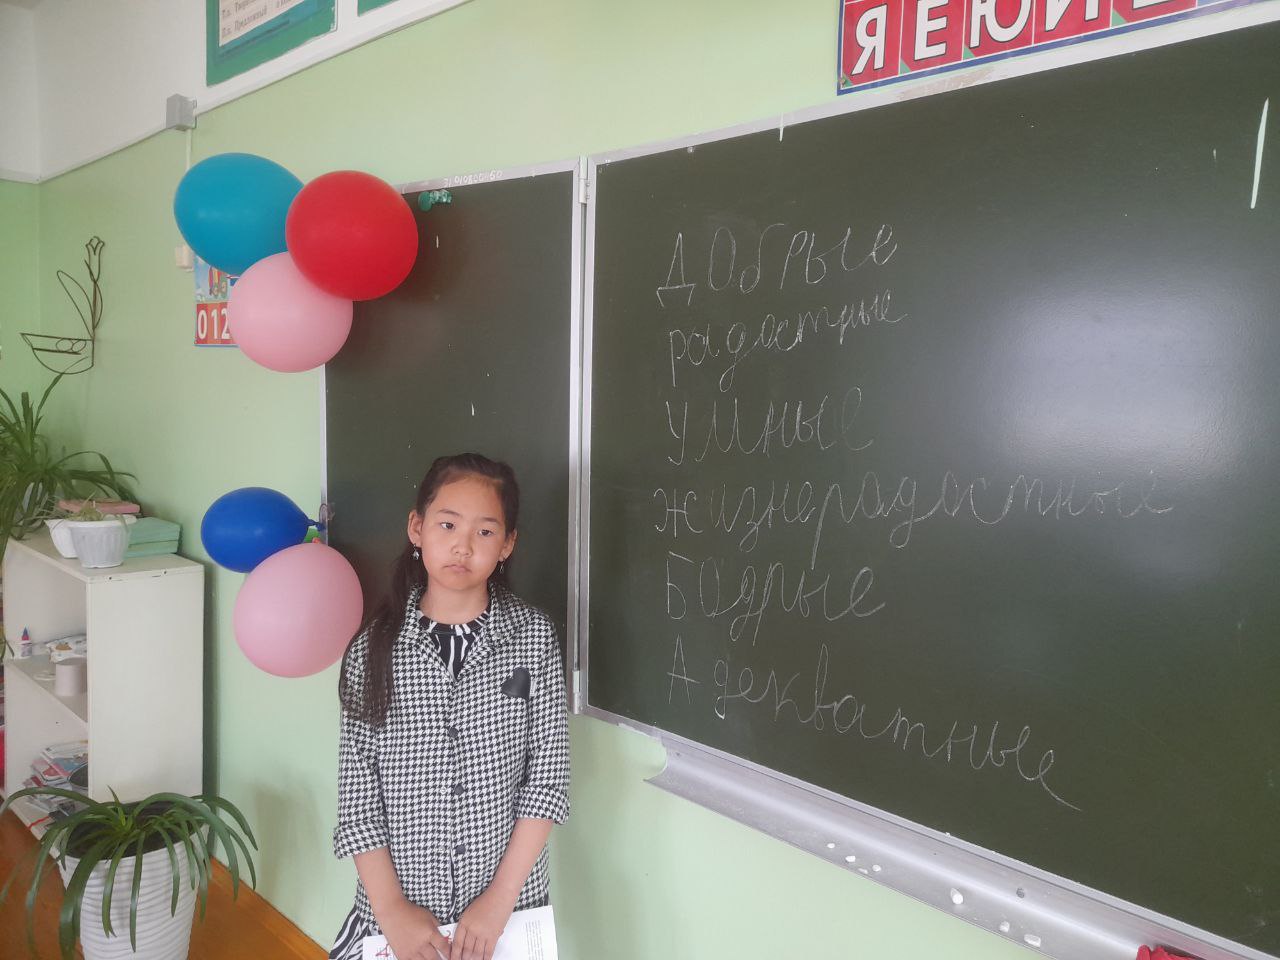 Я Е Ю И Ё
Добрые
радостные
Умные
жизнерадостные
Бодрые
Адекватные
012